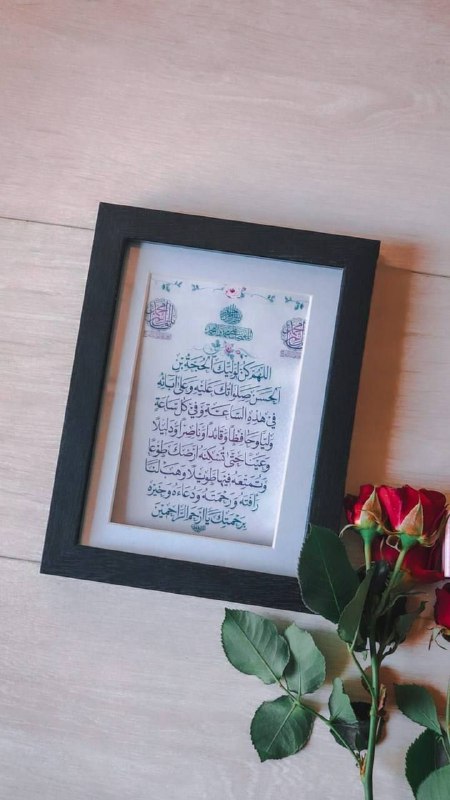 اللهم كن لوليك الحجة بن
الحسن صلواتك عليه وعلى آبائه
في هذه الساعة وفي كل ساعة
وليا وحافظا وقائدا وناصرا ودليلا
وعينا حتى تسكنه أرضك طوعا
وتمتعه فيها طويلا وهب لنا
رأفته ورحمته ودعاءه وخيره
برحمتك يا أرحم الراحمين